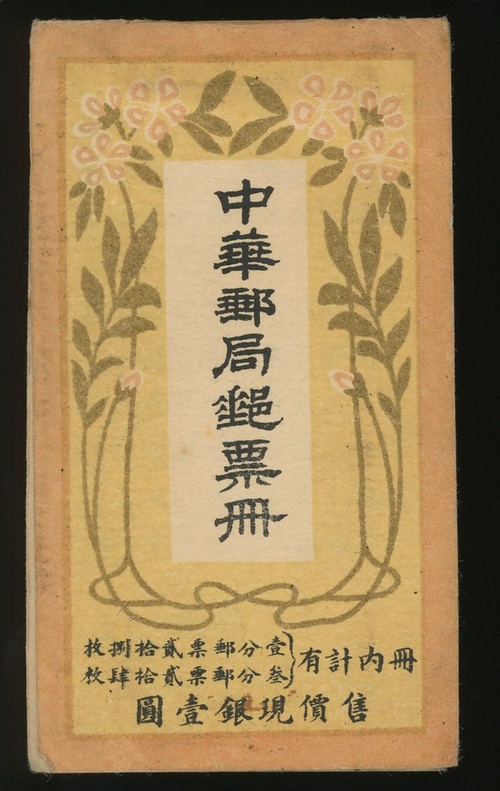 中華郵局郵票冊
冊內計有
壹分郵票貳拾捌枚
叁分郵票貳拾肆枚
售價現銀壹圓